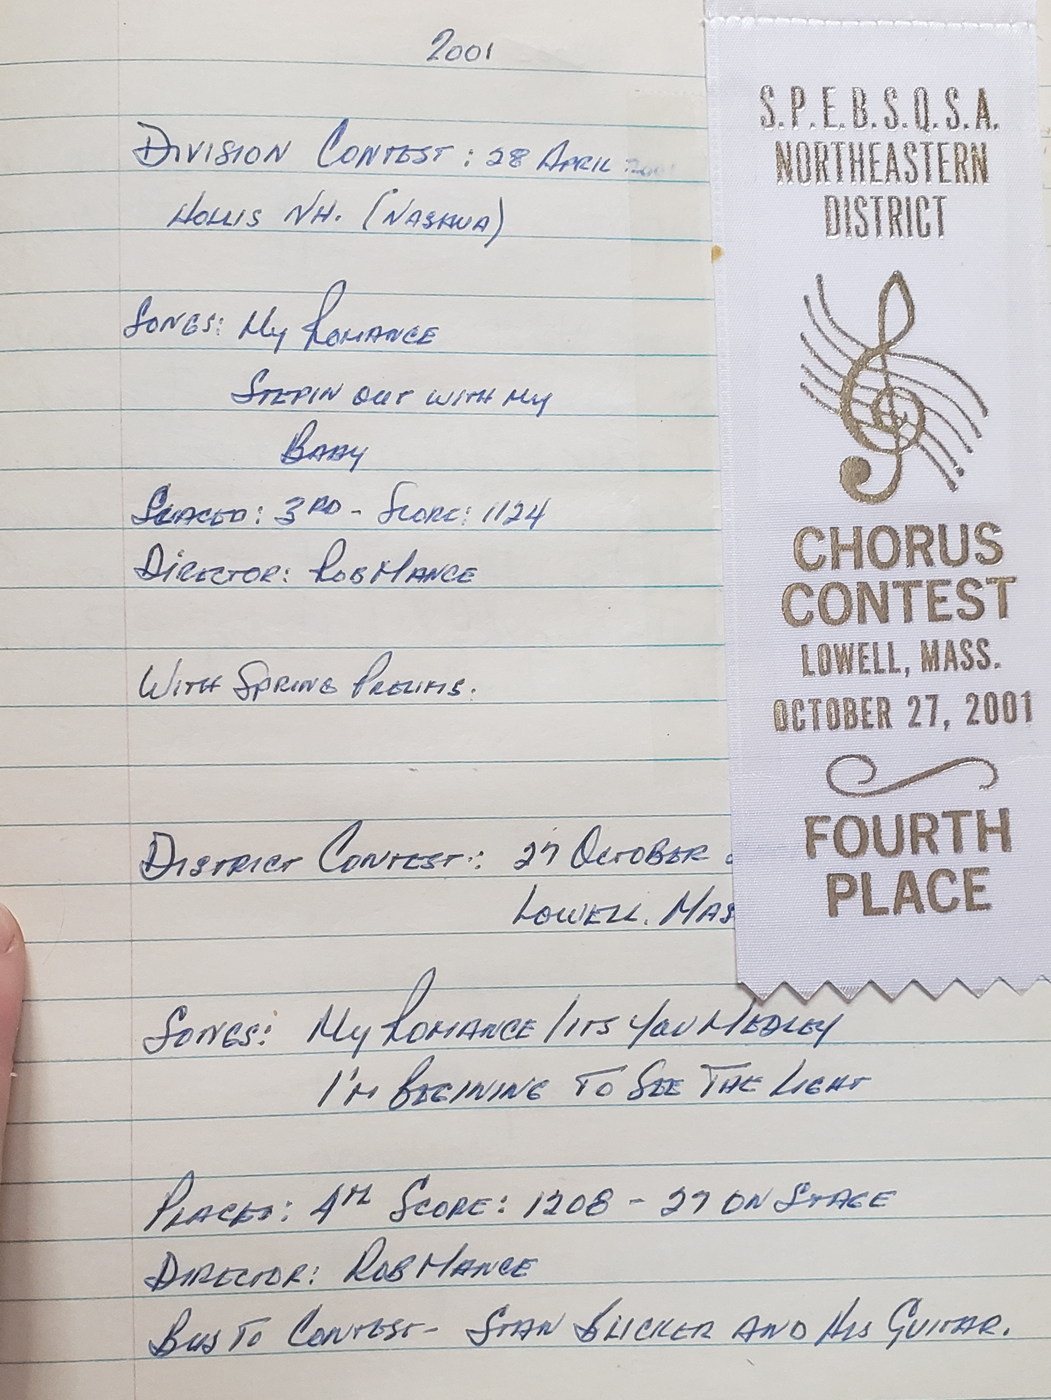 2001
Division Contest: 28 April 2001
Hollis NH. (Nashua)
Songs: My Romance
Stepin out with my
Baby
Placed: 3rd - Score: 1124
Director: Rob Mance
With Spring Prelims.
District Contest: 27 October
Lowell, Mas
Songs: My Romance/its You Medley
I'm Begining To See The Light
Placed: 4th Score: 1208 - 27 on Stage
Director: Rob Mance
Bus To Contest- Stan and His Guitar.
S.P.E.B.S.Q.S.A.
NORTHEASTERN
DISTRICT
CHORUS
CONTEST
LOWELL, MASS.
OCTOBER 27, 2001
FOURTH
PLACE